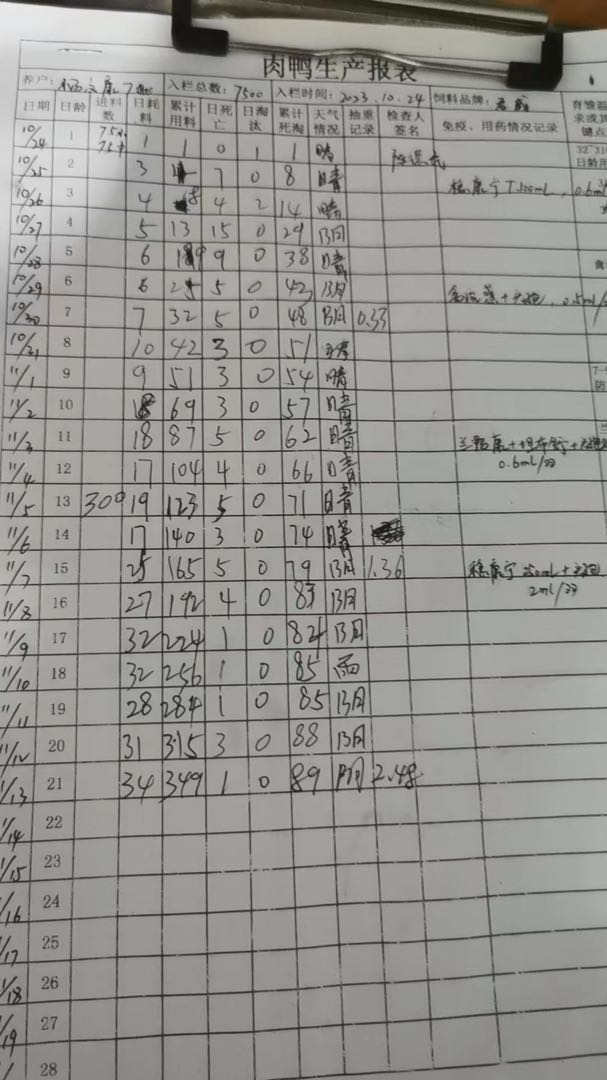 肉鸭生产报表
养户: 入栏总数: 7500 入栏时间: 2023.10.24 饲料品牌:
日期 日龄 进料数 日耗料 累计用料 日死亡 日淘汰 累计死淘 天气情况 抽重记录 检查人签名 免疫、用药情况记录
10/24 1 1 1 0 1 1 晴
10/25 2 3 7 0 8 晴
10/26 3 4 8 4 2 14 晴
10/27 4 5 13 15 0 29 阴
10/28 5 6 19 9 0 38 晴
10/29 6 6 25 5 0 43 阴
10/30 7 7 32 5 0 48 阴 0.33
10/31 8 10 42 3 0 51 晴
11/1 9 9 51 3 0 54 晴
11/2 10 18 69 3 0 57 晴
11/3 11 18 87 5 0 62 晴 0.6ml/羽
11/4 12 17 104 4 0 66 晴
11/5 13 300 19 123 5 0 71 晴
11/6 14 17 140 3 0 74 晴
11/7 15 25 165 5 0 79 阴 1.36 2ml/羽
11/8 16 27 192 4 0 83 阴
11/9 17 32 224 1 0 84 阴
11/10 18 32 256 1 0 85 雨
11/11 19 28 284 1 0 85 阴
11/12 20 31 315 3 0 88 阴
11/13 21 34 349 1 0 89 阴 2.48
11/14 22
1/15 23
1/16 24
1/17 25
1/18 26
1/19 27
28